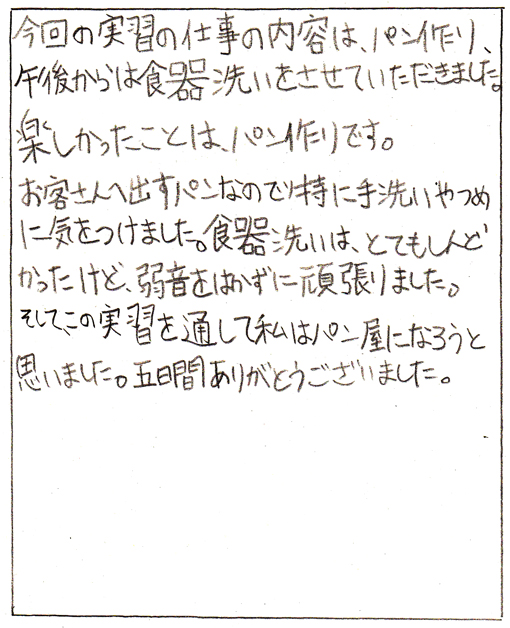 今回の実習の仕事の内容は、パン作り、
午後からは食器洗いをさせていただきました。
楽しかったことは、パン作りです。
お客さんへ出すパンなので特に手洗いやつめ
に気をつけました。食器洗いは、とてもしんど
かったけど、弱音をはかずに頑張りました。
そして、この実習を通して私はパン屋になろうと
思いました。五日間ありがとうございました。